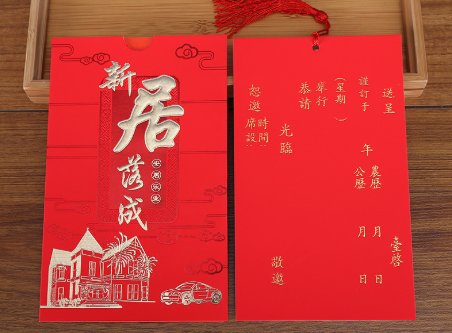 新居落成
送呈 臺啓
謹訂于 年
農歷 月 日
公歷 月 日
(星期 )
舉行
恭請
光臨
敬邀
恕邀
時間
席設